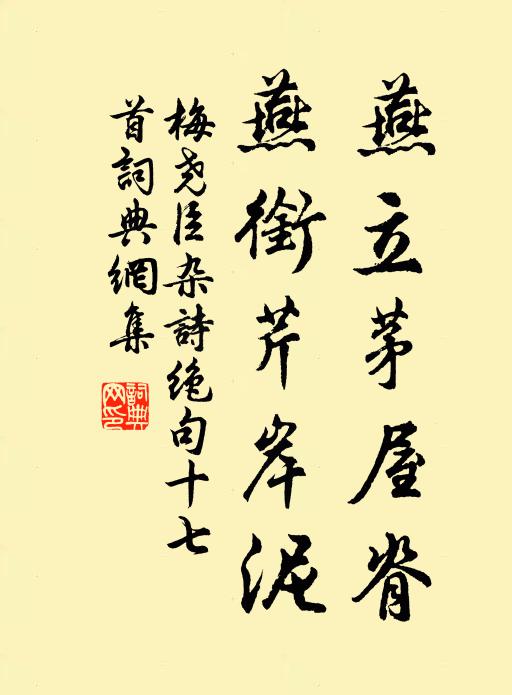 燕立茅屋脊
燕銜芹岸泥
梅尧臣杂詩绝句十七
首詞典網集
詞典网印